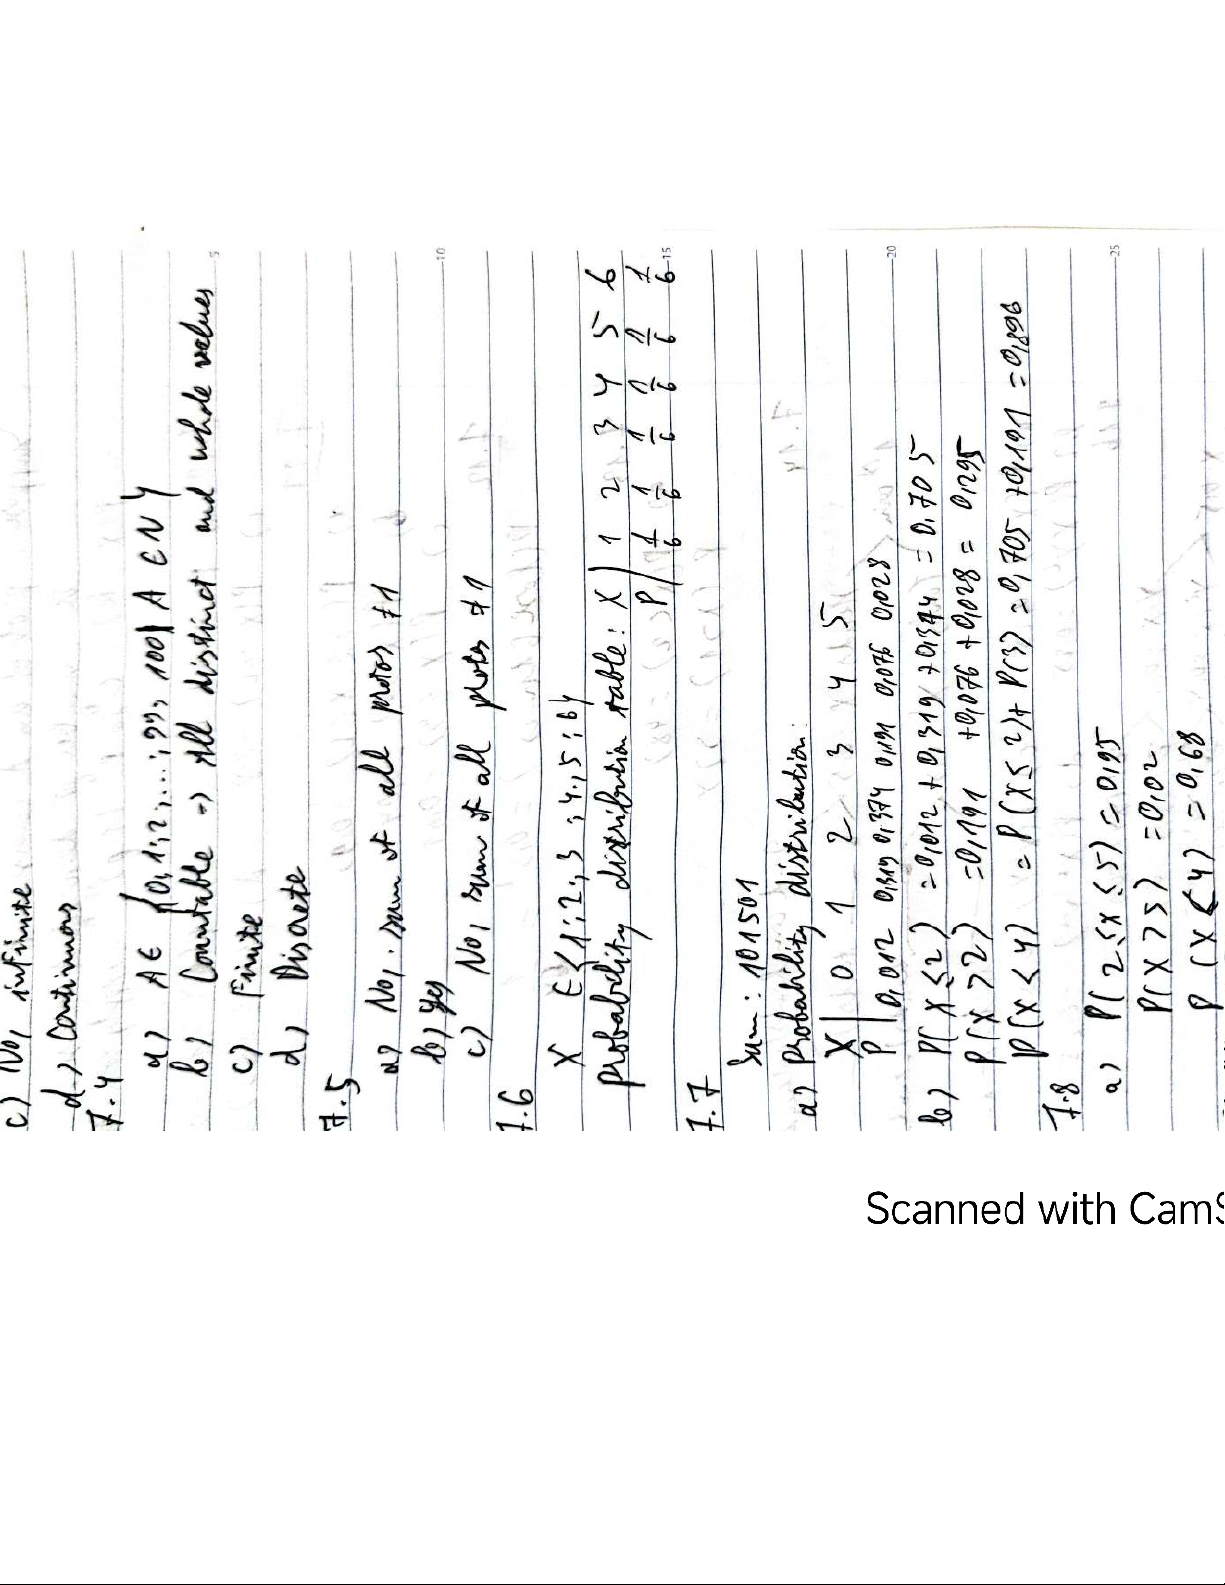 c) No, infinite
d) Continuous
7.4
a) A ∈ {0,1;2,...;99, 100| A ∈ N}
b) Countable => All distinct and whole values
c) Finite
d) Discrete
7.5
a) No, sum of all probs ≠1
b) Yes
c) No, sum of all probs ≠1
7.6
X ∈{1;2;3;4;5;6}
Probability distribution table: X | 1 2 3 4 5 6
P | 1/6 1/6 1/6 1/6 1/6 1/6
7.7
Sum: 101501
a) Probability distribution:
X | 0 1 2 3 4 5
P | 0,012 0,319 0,374 0,191 0,076 0,028
b) P(X ≤2) =0,012 + 0,319 +0,374 = 0,705
P(X >2) =0,191 +0,076 +0,028 = 0,295
P(X < 4) = P(X≤2)+ P(3) =0,705 +0,191 =0,896
7.8
a) P(2≤X≤5) =0,95
P(X>5) =0,02
P(X<4) =0,68
5
10
15
20
25
Scanned with CamS